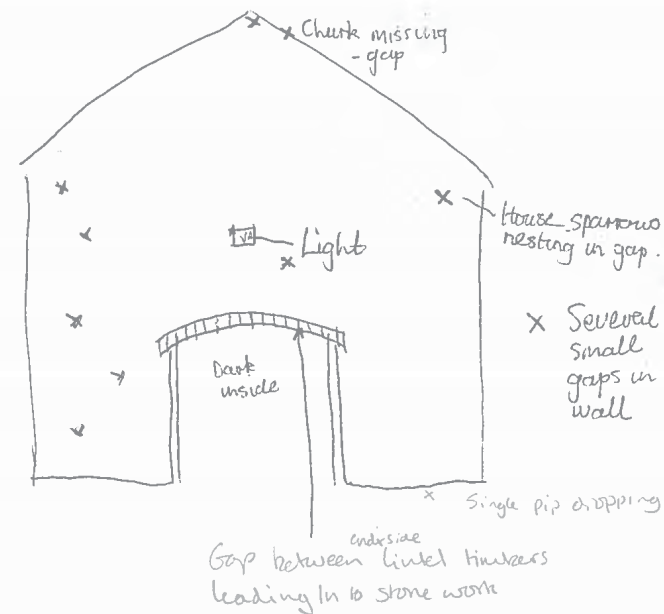 Chunk missing
- gap
House sparrows
nesting in gap.
Light
X Several
small
gaps in
wall
Dark
inside
Single pip dropping
underside
Gap between lintel timbers
leading in to stone work